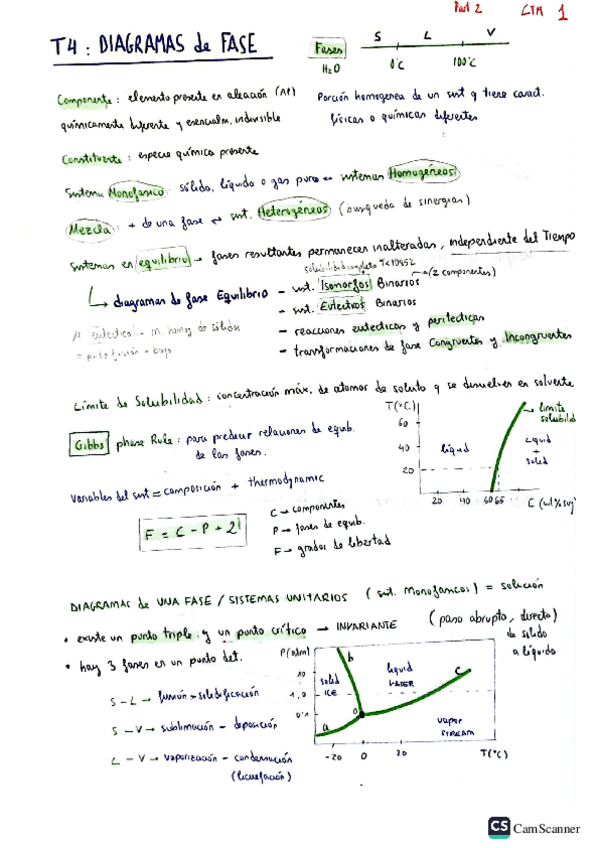 Part 2 CTM 1
T4 : DIAGRAMAS de FASE
Fases
H₂O
S L V
0°C 100°C
Componente : elemento presente en aleación
químicamente diferente y esencialm. indivisible
Porción homogenea de un sist q tiene caract.
físicas o químicas diferentes
Constituyente : especie química presente
Sistema Monofasico : sólido, líquido o gas puro ↔ sistemas Homogéneos
Mezcla : + de una fase ↔ sist. Heterogéneos (busqueda de sinergias)
Sistemas en equilibrio → fases resultantes permanecen inalteradas, independiente del Tiempo
solubilidad completa
diagramas de fase Equilibrio - sist. Isomorfos Binarios (2 componentes)
- sist. Eutectico Binarios
- reacciones eutecticas y peritecticas
- transformaciones de fase Congruentes y Incongruentes
Límite de Solubilidad : concentración máx. de atomos de soluto q se disuelven en solvente
Gibbs phase Rule : para predecir relaciones de equib.
de las fases.
Variables del sist = composición + thermodynamic
F = C - P + 2
C → componentes
P → fases de equib.
F → grados de libertad
T(°C)
60
40
20
20 40 60 65 C (wt%
líquid
limite
solubilidad
Liquid
+
solid
DIAGRAMAS de UNA FASE / SISTEMAS UNITARIOS (sist. Monofasicos) = solución
• existe un punto triple y un punto crítico → INVARIANTE (paso abrupto, directo)
de solido
a líquido
• hay 3 fases en un punto det.
S - L → fusión - solidificación
S - V → sublimación - deposición
L - V → vaporización - condensación
(licuefacción)
P(atm)
10
1,0
0'1
b
solid
ICE
liquid
c
o
a
vapor
STREAM
-20 0 20 T(°C)
CS CamScanner